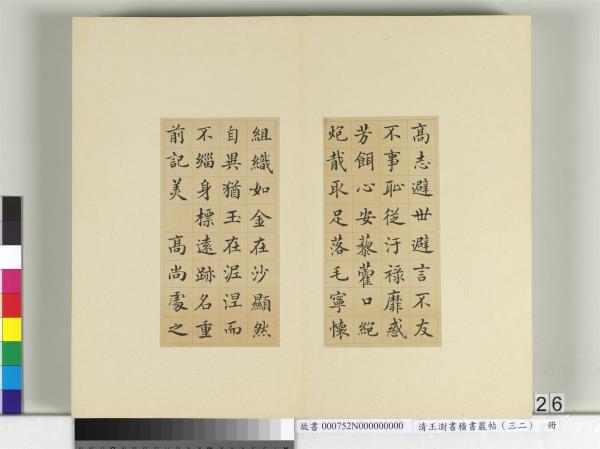 高志避世避言不友
不事恥從汙祿靡惑
芳餌心安藜藿口絕
炮胾取足落毛寧懷
組織如金在沙顯然
自異猶玉在泥涅而
不緇身標遠跡名重
前記美 高尚處之
26
故書 000752N000000000 清王澍書積書巖帖（三二） 冊